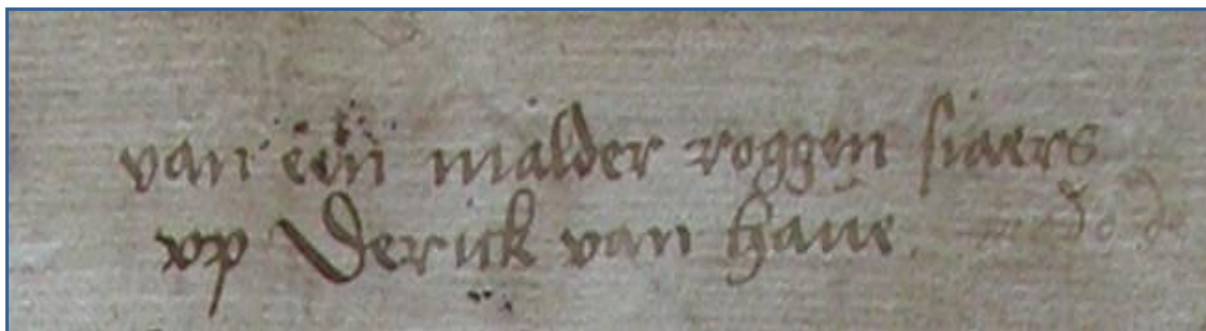 van een malder roggen siaers
vp Derick van Haue